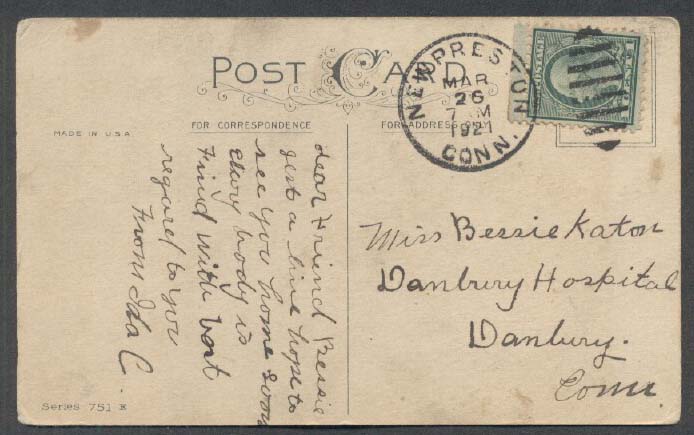 POST CARD
FOR CORRESPONDENCE
FOR ADDRESS ONLY
MADE IN U.S.A.
NEW PRESTON
MAR
26
7 AM
1921
CONN.
dear Friend Bessie
Just a line hope to
see you home soon
evry body is
Find with best
regard to you
From Ida C.
Miss Bessie Katon
Danbury Hospital
Danbury.
Conn.
Series 751 E